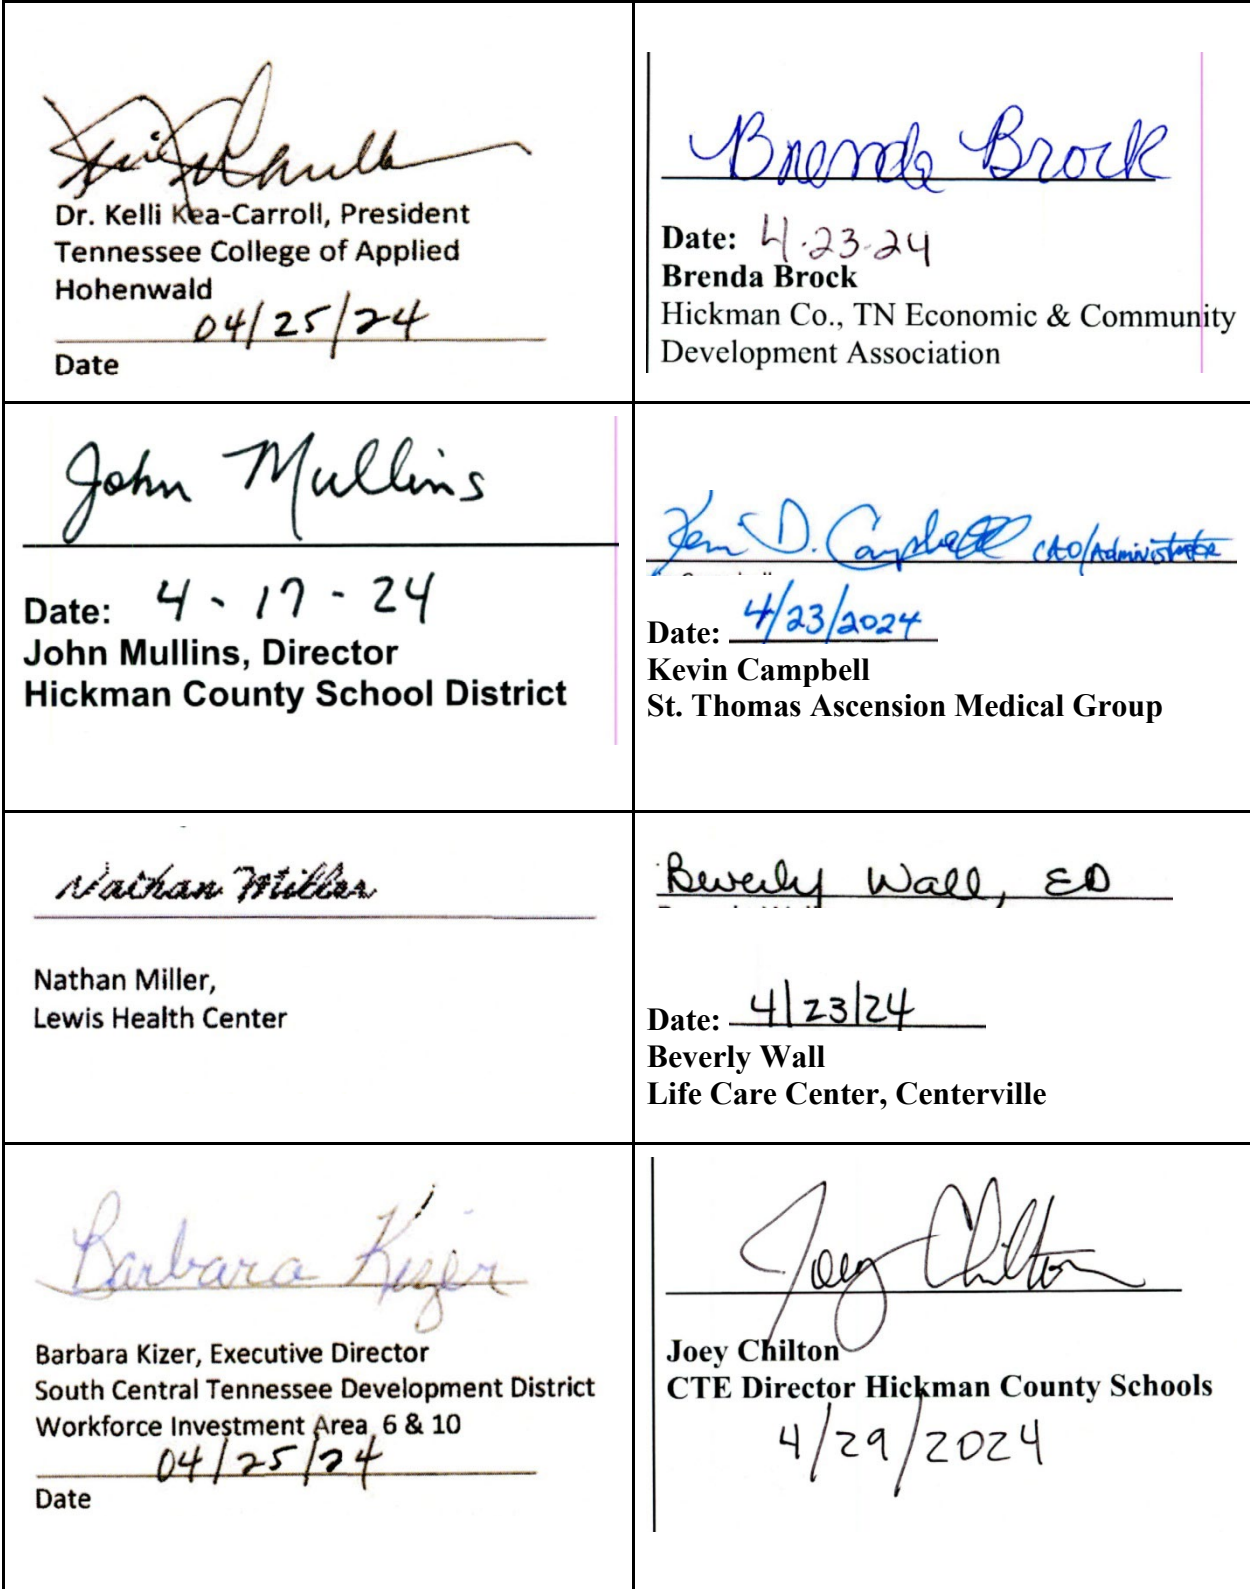 Dr. Kelli Kea-Carroll, President
Tennessee College of Applied
Hohenwald
04/25/24
Date
Brenda Brock
Date: 4-23-24
Brenda Brock
Hickman Co., TN Economic & Community
Development Association
John Mullins
Date: 4-17-24
John Mullins, Director
Hickman County School District
D. Campbell CAO/Administrator
Date: 4/23/2024
Kevin Campbell
St. Thomas Ascension Medical Group
Nathan Miller
Nathan Miller,
Lewis Health Center
Beverly Wall, ED
Date: 4/23/24
Beverly Wall
Life Care Center, Centerville
Barbara Kizer
Barbara Kizer, Executive Director
South Central Tennessee Development District
Workforce Investment Area 6 & 10
04/25/24
Date
Joey Chilton
Joey Chilton
CTE Director Hickman County Schools
4/29/2024